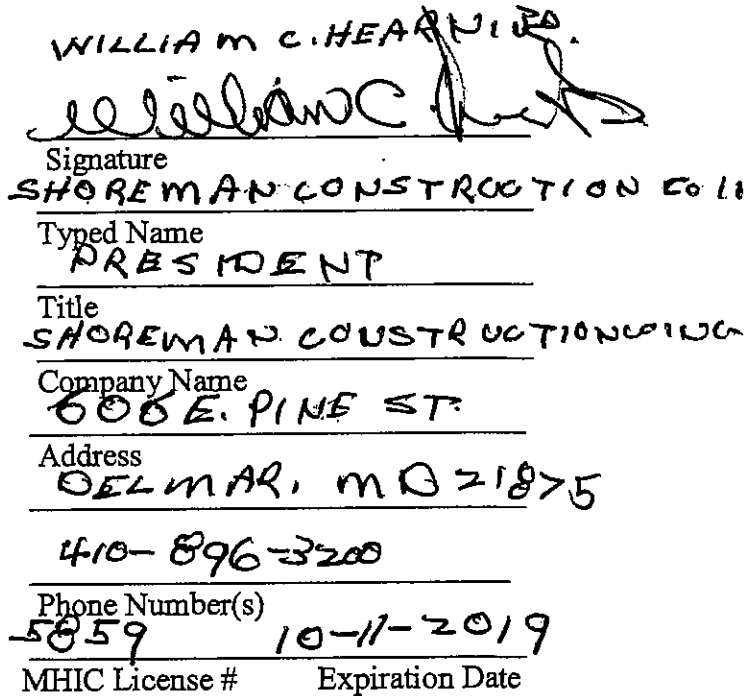 WILLIAM C. HEARN
Signature
SHOREMAN CONSTRUCTION CO
Typed Name
PRESIDENT
Title
SHOREMAN CONSTRUCTION CO INC
Company Name
606 E. PINE ST.
Address
DELMAR, MD 21875
410-896-3200
Phone Number(s)
5859 10-11-2019
MHIC License # Expiration Date